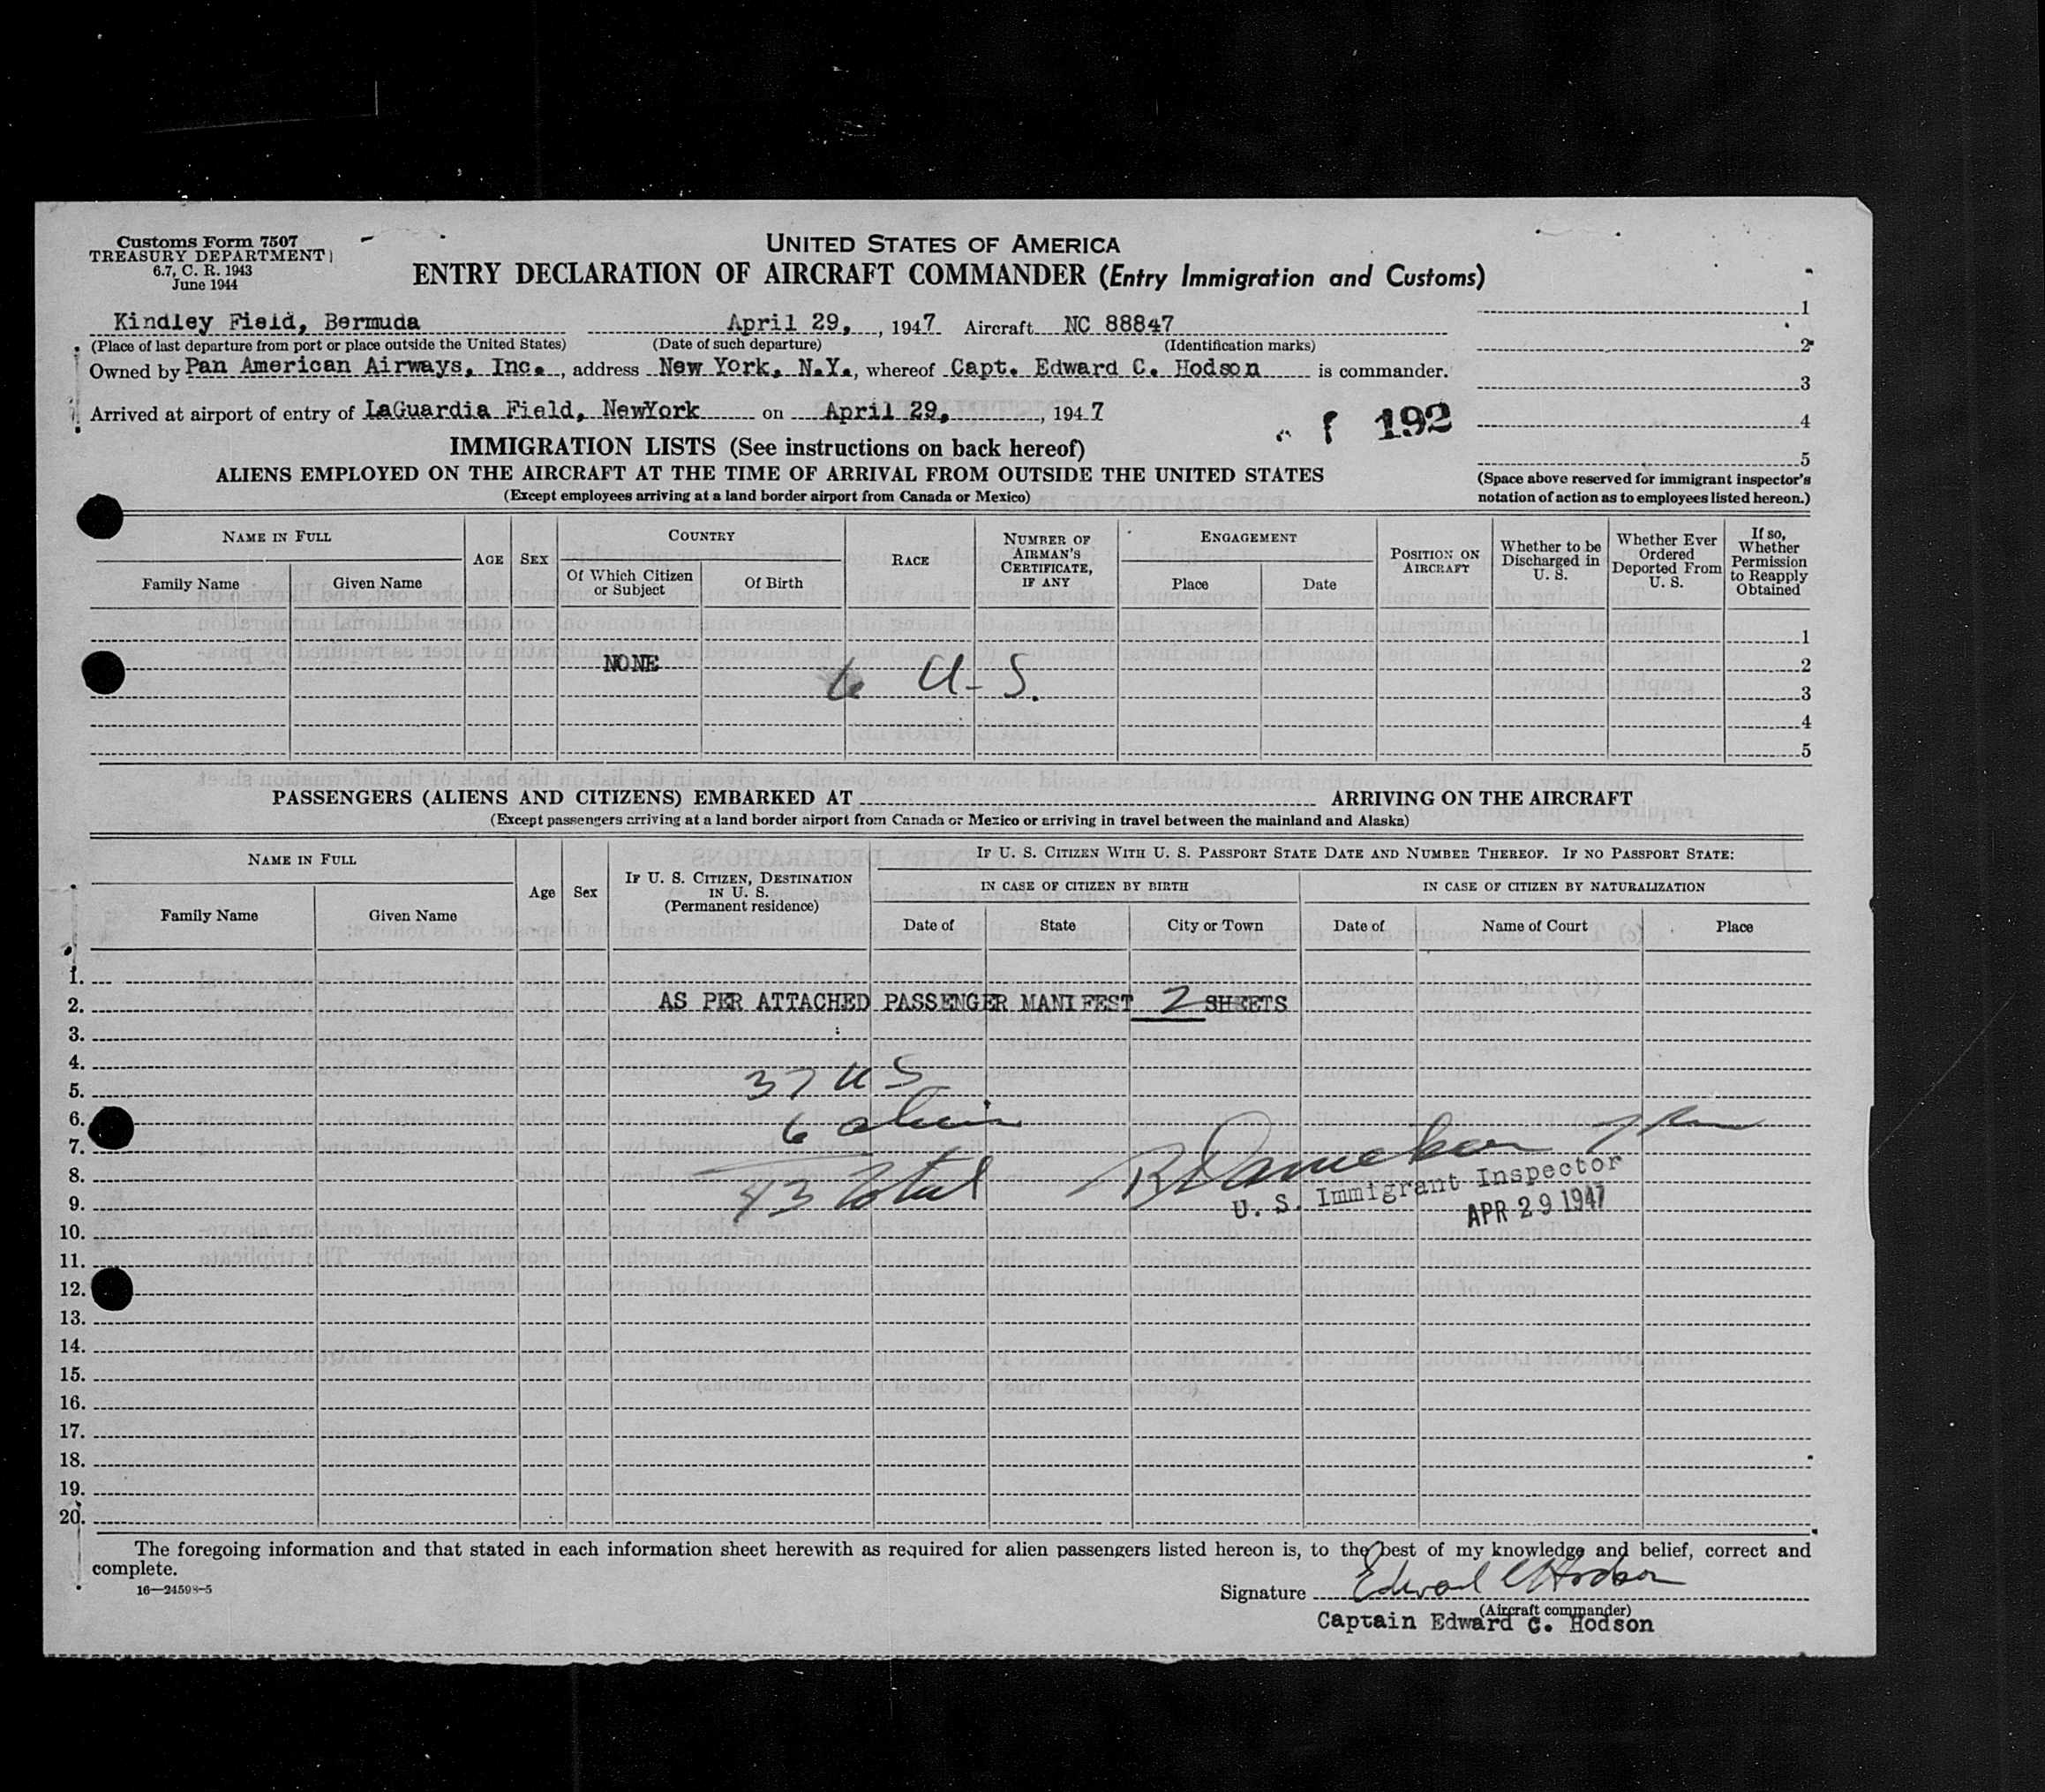 Customs Form 7507
TREASURY DEPARTMENT
6.7, C. R. 1943
June 1944
UNITED STATES OF AMERICA
ENTRY DECLARATION OF AIRCRAFT COMMANDER (Entry Immigration and Customs)
Kindley Field, Bermuda April 29, , 1947 Aircraft NC 88847
(Place of last departure from port or place outside the United States) (Date of such departure) (Identification marks)
Owned by Pan American Airways, Inc. , address New York, N.Y., whereof Capt. Edward C. Hodson is commander.
Arrived at airport of entry of LaGuardia Field, NewYork on April 29, , 1947
192
1
2
3
4
5
(Space above reserved for immigrant inspector's
notation of action as to employees listed hereon.)
IMMIGRATION LISTS (See instructions on back hereof)
ALIENS EMPLOYED ON THE AIRCRAFT AT THE TIME OF ARRIVAL FROM OUTSIDE THE UNITED STATES
(Except employees arriving at a land border airport from Canada or Mexico)
NAME IN FULL
Family Name Given Name
AGE
SEX
COUNTRY
Of Which Citizen or Subject Of Birth
RACE
NUMBER OF AIRMAN'S CERTIFICATE, IF ANY
ENGAGEMENT
Place Date
POSITION ON AIRCRAFT
Whether to be Discharged in U. S.
Whether Ever Ordered Deported From U. S.
If so, Whether Permission to Reapply Obtained
1
NONE 2
6 U-S. 3
4
5
PASSENGERS (ALIENS AND CITIZENS) EMBARKED AT ARRIVING ON THE AIRCRAFT
(Except passengers arriving at a land border airport from Canada or Mexico or arriving in travel between the mainland and Alaska)
NAME IN FULL
Family Name Given Name
Age
Sex
IF U. S. CITIZEN, DESTINATION IN U. S.
(Permanent residence)
IF U. S. CITIZEN WITH U. S. PASSPORT STATE DATE AND NUMBER THEREOF. IF NO PASSPORT STATE:
IN CASE OF CITIZEN BY BIRTH
IN CASE OF CITIZEN BY NATURALIZATION
Date of State City or Town Date of Name of Court Place
1.
2. AS PER ATTACHED PASSENGER MANIFEST 2 SHEETS
3.
4.
5. 37 US
6. 6 alien
7.
8.
9. 43 Total
U. S. Immigrant Inspector
APR 29 1947
10.
11.
12.
13.
14.
15.
16.
17.
18.
19.
20.
The foregoing information and that stated in each information sheet herewith as required for alien passengers listed hereon is, to the best of my knowledge and belief, correct and
complete.
16—24598-5
Signature Edward C Hodson
(Aircraft commander)
Captain Edward C. Hodson